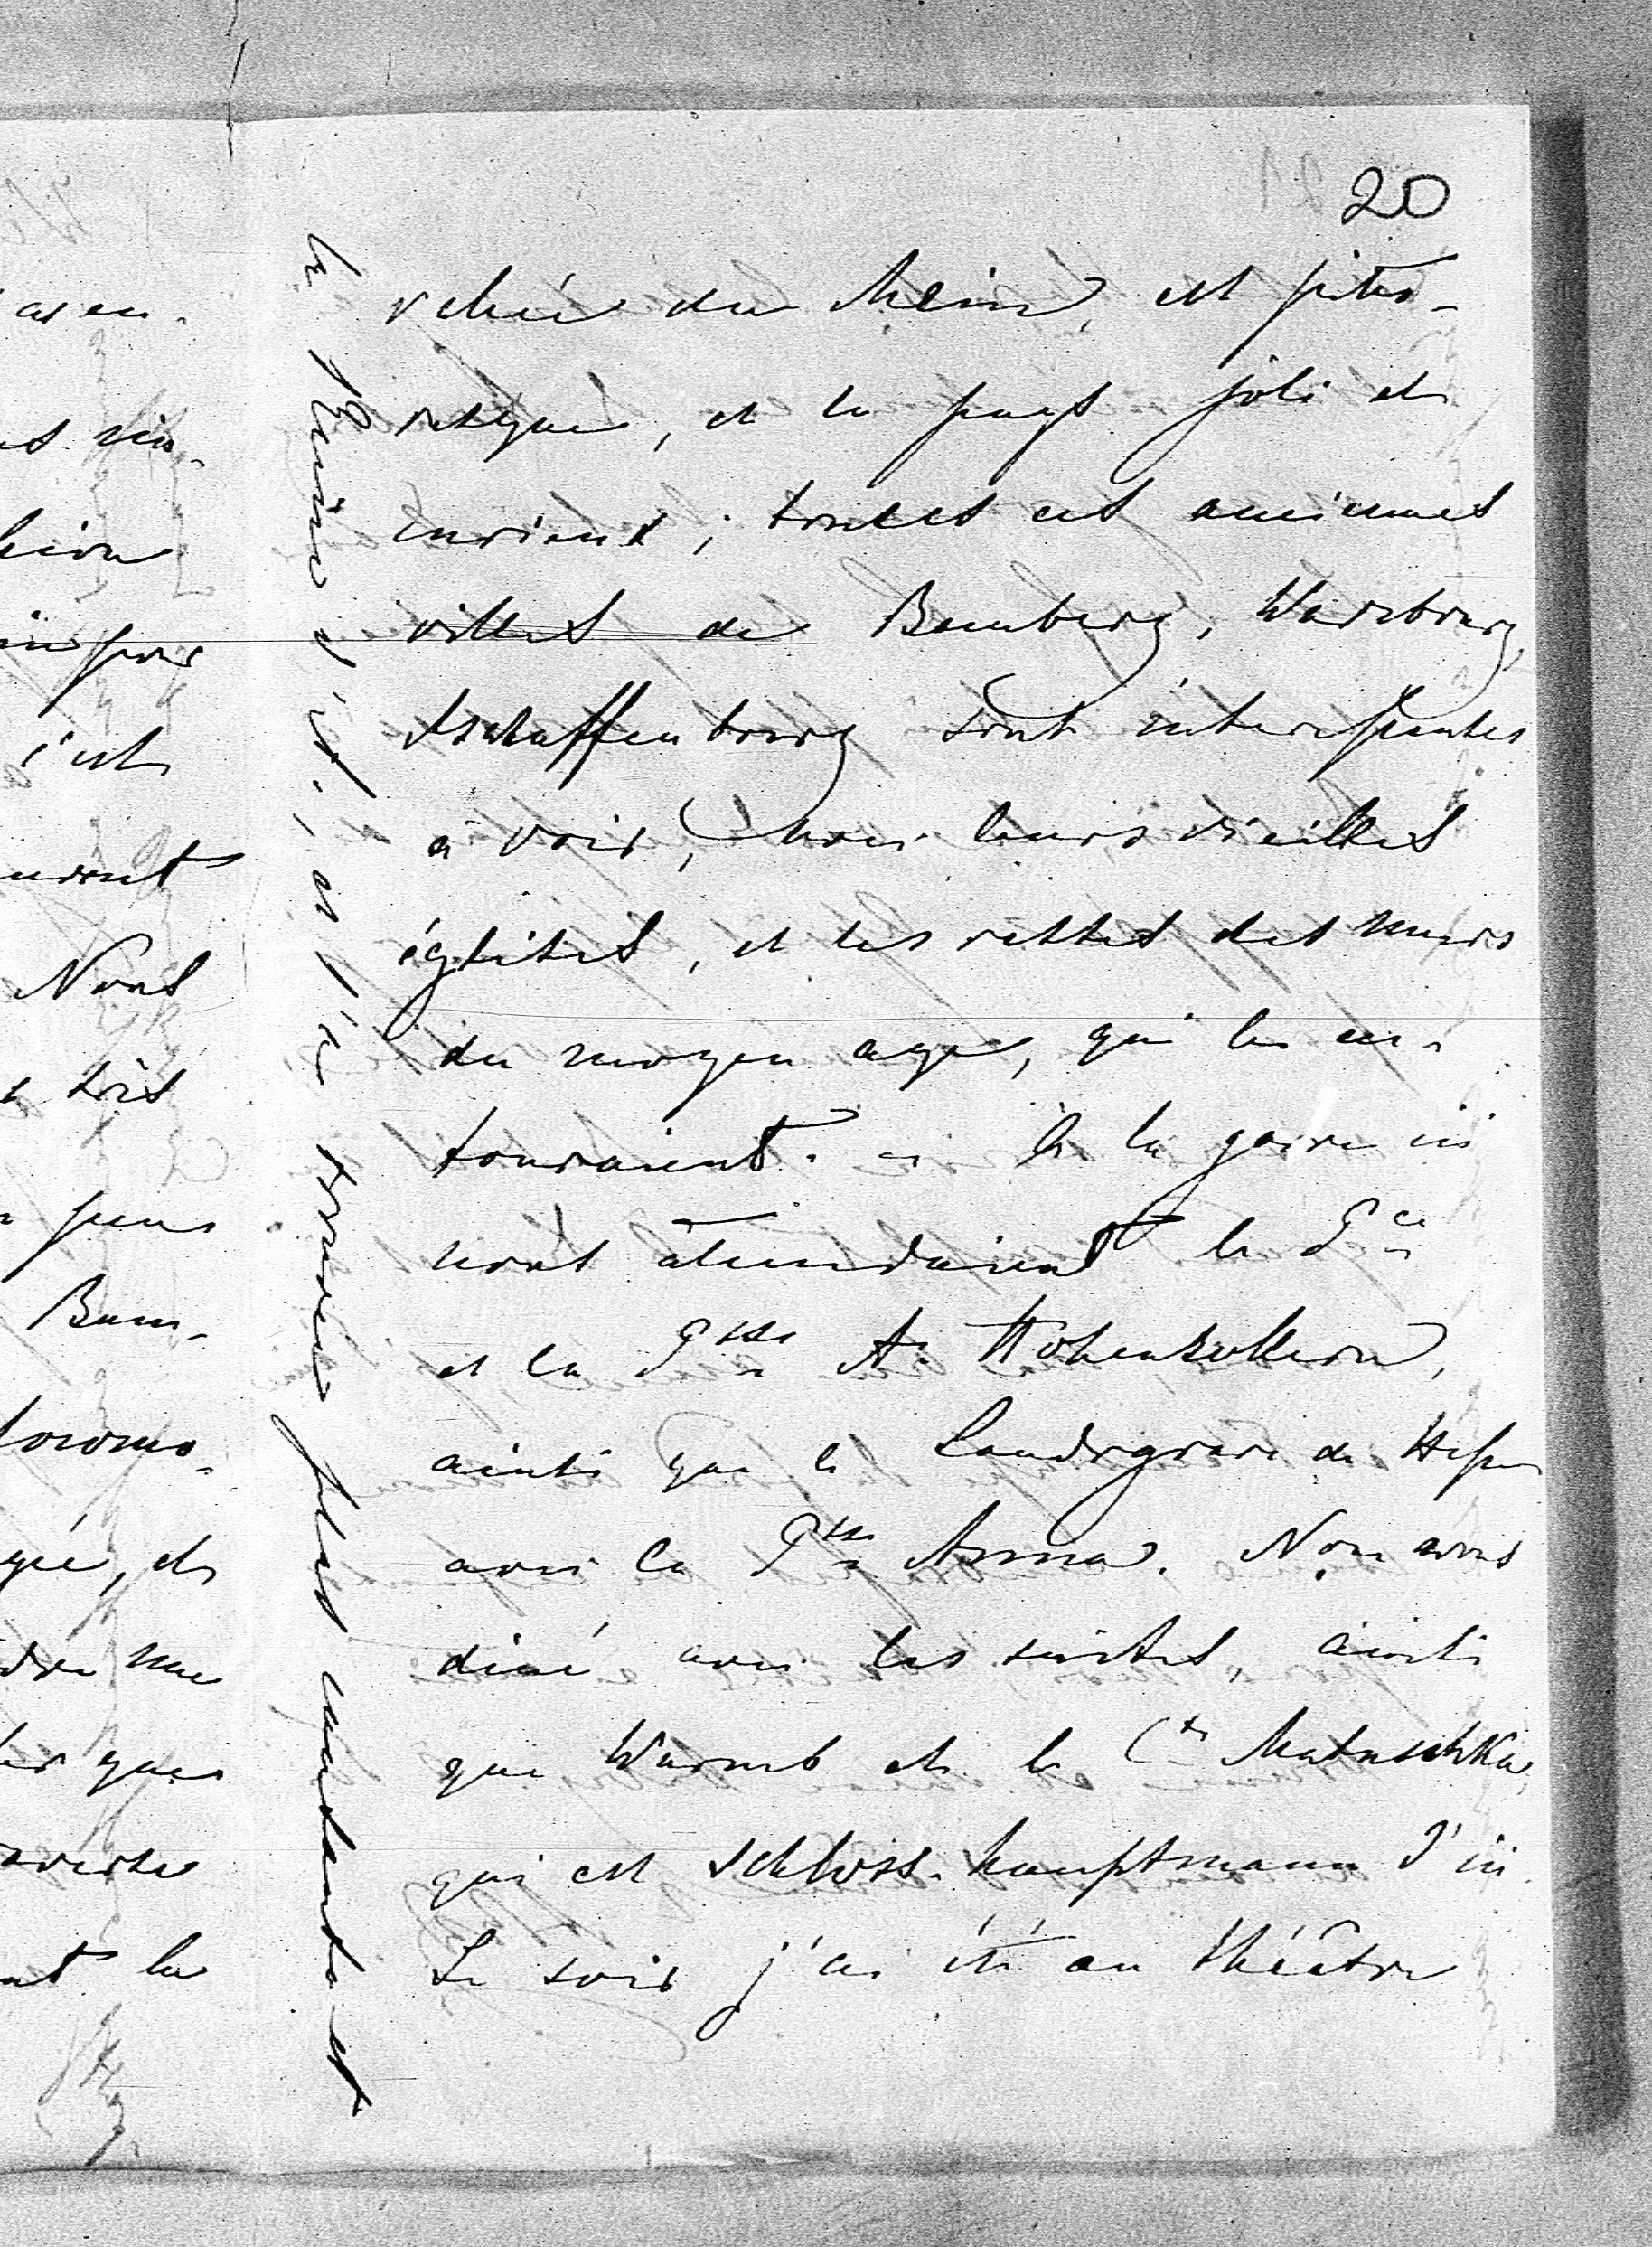 20
vallée du Mein, est pitto-
resque, et le pays joli et
curieux; toutes ces anciennes
villes de Bamberg, Würzbourg,
Aschaffenbourg sont interessantes
à voir, avec leurs vieilles
églises, et les restes des murs
du moyen age, qui les en-
touraient. - A la gare ici
nous attendaient le Pce
et la Psse A. Hohenzollern,
ainsi que le Landgrave de Hesse
avec la Psse Anna. Nous avons
diné avec les suites, ainsi
que Wurmb et le Cte Matuschka,
qui est Schloss-hauptmann d'ici.
Le soir j'ai été au théâtre
asen-
c'est
Nous
très
peu
Bam-
locomo-
et
une
que
la